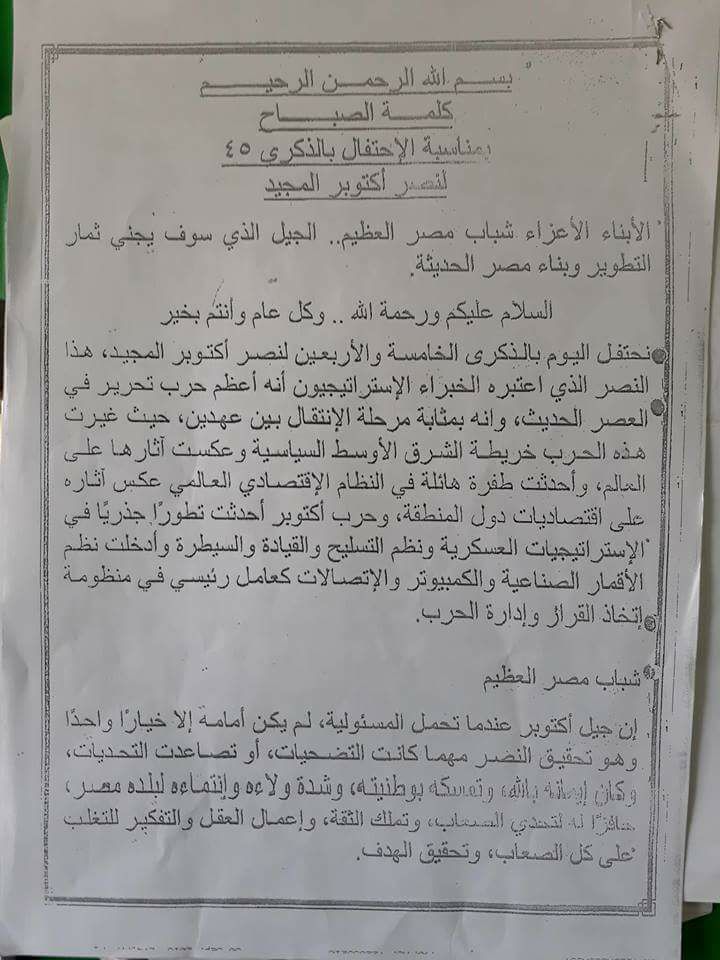 بسم الله الرحمن الرحيم
كلمة الصباح
بمناسبة الإحتفال بالذكرى ٤٥
لنصر أكتوبر المجيد
الأبناء الأعزاء شباب مصر العظيم.. الجيل الذي سوف يجني ثمار
التطوير وبناء مصر الحديثة.
السلام عليكم ورحمة الله .. وكل عام وأنتم بخير
نحتفل اليوم بالذكرى الخامسة والأربعين لنصر أكتوبر المجيد، هذا
النصر الذي اعتبره الخبراء الإستراتيجيون أنه أعظم حرب تحرير في
العصر الحديث، وانه بمثابة مرحلة الإنتقال بين عهدين، حيث غيرت
هذه الحرب خريطة الشرق الأوسط السياسية وعكست آثارها على
العالم، وأحدثت طفرة هائلة في النظام الإقتصادي العالمي عكس آثاره
على اقتصاديات دول المنطقة، وحرب أكتوبر أحدثت تطورًا جذريًا في
الإستراتيجيات العسكرية ونظم التسليح والقيادة والسيطرة وأدخلت نظم
الأقمار الصناعية والكمبيوتر والإتصالات كعامل رئيسي في منظومة
إتخاذ القرار وإدارة الحرب.
شباب مصر العظيم
إن جيل أكتوبر عندما تحمل المسئولية، لم يكن أمامة إلا خيارًا واحدًا
وهو تحقيق النصر مهما كانت التضحيات، أو تصاعدت التحديات،
وكان إيمانه بالله، وتمسكه بوطنيته، وشدة ولاءه وإنتماءه لبلده مصر،
حافزًا له لتحدي الصعاب، وتملك الثقة، وإعمال العقل والتفكير للتغلب
على كل الصعاب، وتحقيق الهدف.